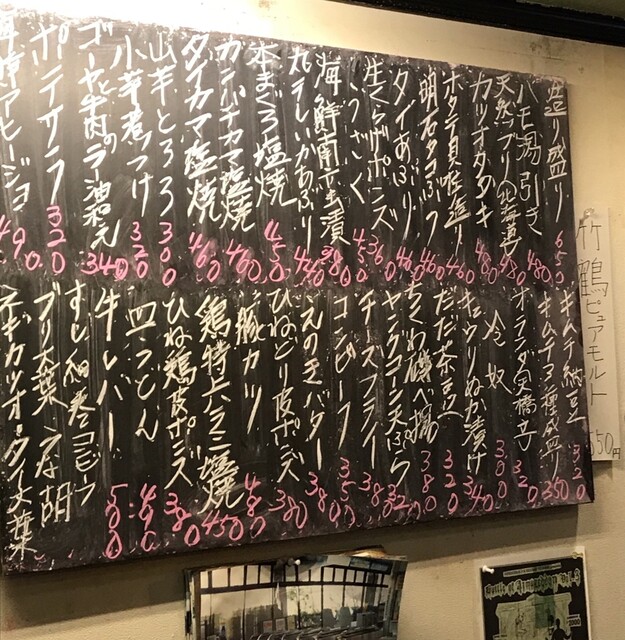 造り盛り 650
ハモ湯引き 480
天然ブリ(北海道) 480
カツオタタキ 480
ホタテ貝唯造り 460
明石タコぶつ 460
タイあぶり 460
生くらげポンズ 360
うざく 450
海鮮南蛮漬 380
丸干しいかあぶり 420
本まぐろ塩焼 450
カンパチカマ塩焼 460
タイカマ塩焼 460
山芋とろろ 300
小芋煮つけ 320
ゴーヤと牛肉のラー油和え 340
ポテサラ 320
海鮮アヒージョ 490
キムチ納豆 320
キムチ三種盛り 350
オランダ天橋立 320
冷奴 300
キュウリぬか漬け 340
だだ茶豆 320
ちくわ磯べ揚 380
ヤングコーン天ぷら 320
チーズフライ 380
コンビーフ 350
えのきバター 380
ひねどり皮ポンズ 380
豚カツ 480
鶏特上ハラミ塩焼 450
ひね鶏皮ポンズ 380
皿うどん 490
牛レバー 500
すし細巻
ブリ大葉 うな胡
ネギカツオ タイ大葉
竹鶴ピュアモルト 550円